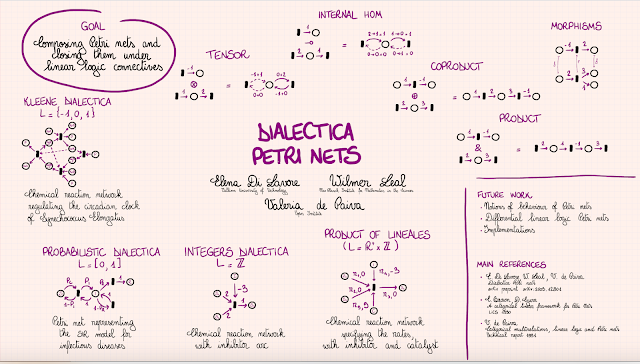 GOAL
Composing Petri nets and
closing them under
linear logic connectives
INTERNAL HOM
TENSOR
COPRODUCT
MORPHISMS
PRODUCT
KLEENE DIALECTICA
L = {-1, 0, 1}
Chemical reaction network
regulating the circadian clock
of Synechococcus Elongatus
DIALECTICA
PETRI NETS
Elena Di Lavore
Wilmer Leal
Tallinn University of Technology
Max Planck Institute for Mathematics in the Sciences
Valeria de Paiva
Topos Institute
PROBABILISTIC DIALECTICA
L = [0, 1]
Petri net representing
the SIR model for
infectious diseases
INTEGERS DIALECTICA
L = ℤ
Chemical reaction network
with inhibitor arc
PRODUCT OF LINEALES
(L = R⁺ × ℤ)
Chemical reaction network
specifying the rates,
with inhibitor and catalyst
FUTURE WORK
· Notions of behaviour of Petri nets
· Differential linear logic Petri nets
· Implementations
MAIN REFERENCES
· E. Di Lavore, W. Leal, V. de Paiva
Dialectica Petri nets
· C. Brown, D. Gurr
A categorical linear framework for Petri nets
LICS 1990
· V. de Paiva
Categorical multirelations, linear logic and Petri nets
Technical report 1991